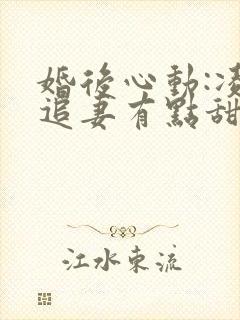 婚後心動:凌
追妻有點甜
江水東流